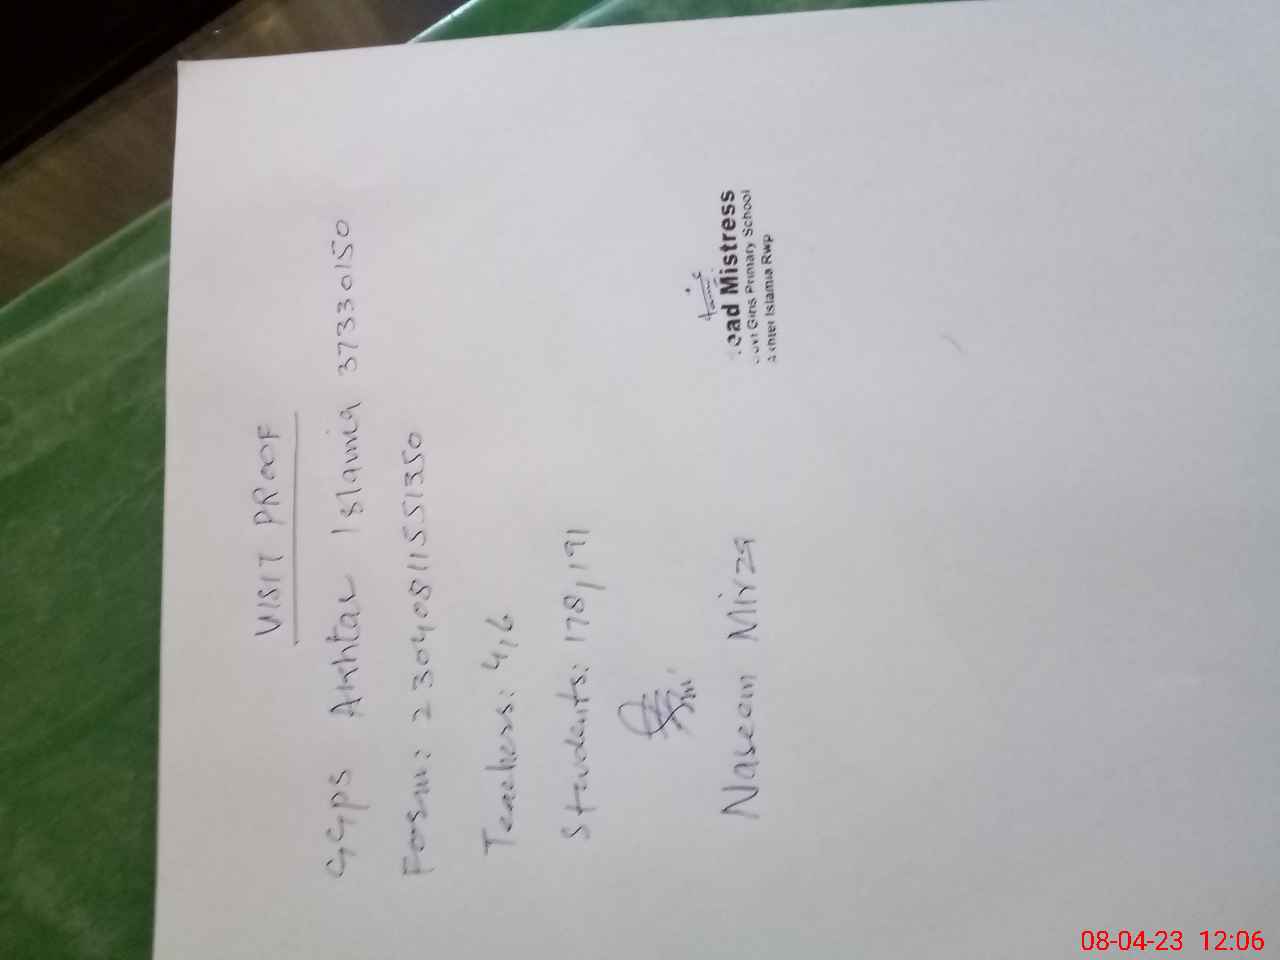 VISIT PROOF
GGPS Akhtar Islamia 37330150
Form: 23040811551350
Teachers: 4/6
Students: 178/191
Naseem Mirza
ead Mistress
ovt Girls Primary School
Islamia Rwp
08-04-23 12:06